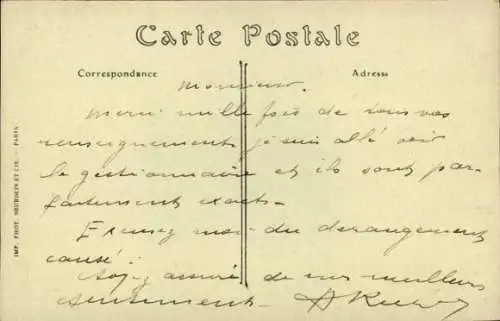 Carte Postale
Correspondance
Adresse
Monsieur.
Merci mille fois de tous vos
renseignements je suis allé voir
le gestionnaire et ils sont par-
faitement exacts.
Excusez moi du derangement
causé!
Soyez assuré de mes meilleurs
sentiments.
IMP. PHOT. NEURDEIN ET CIE. — PARIS